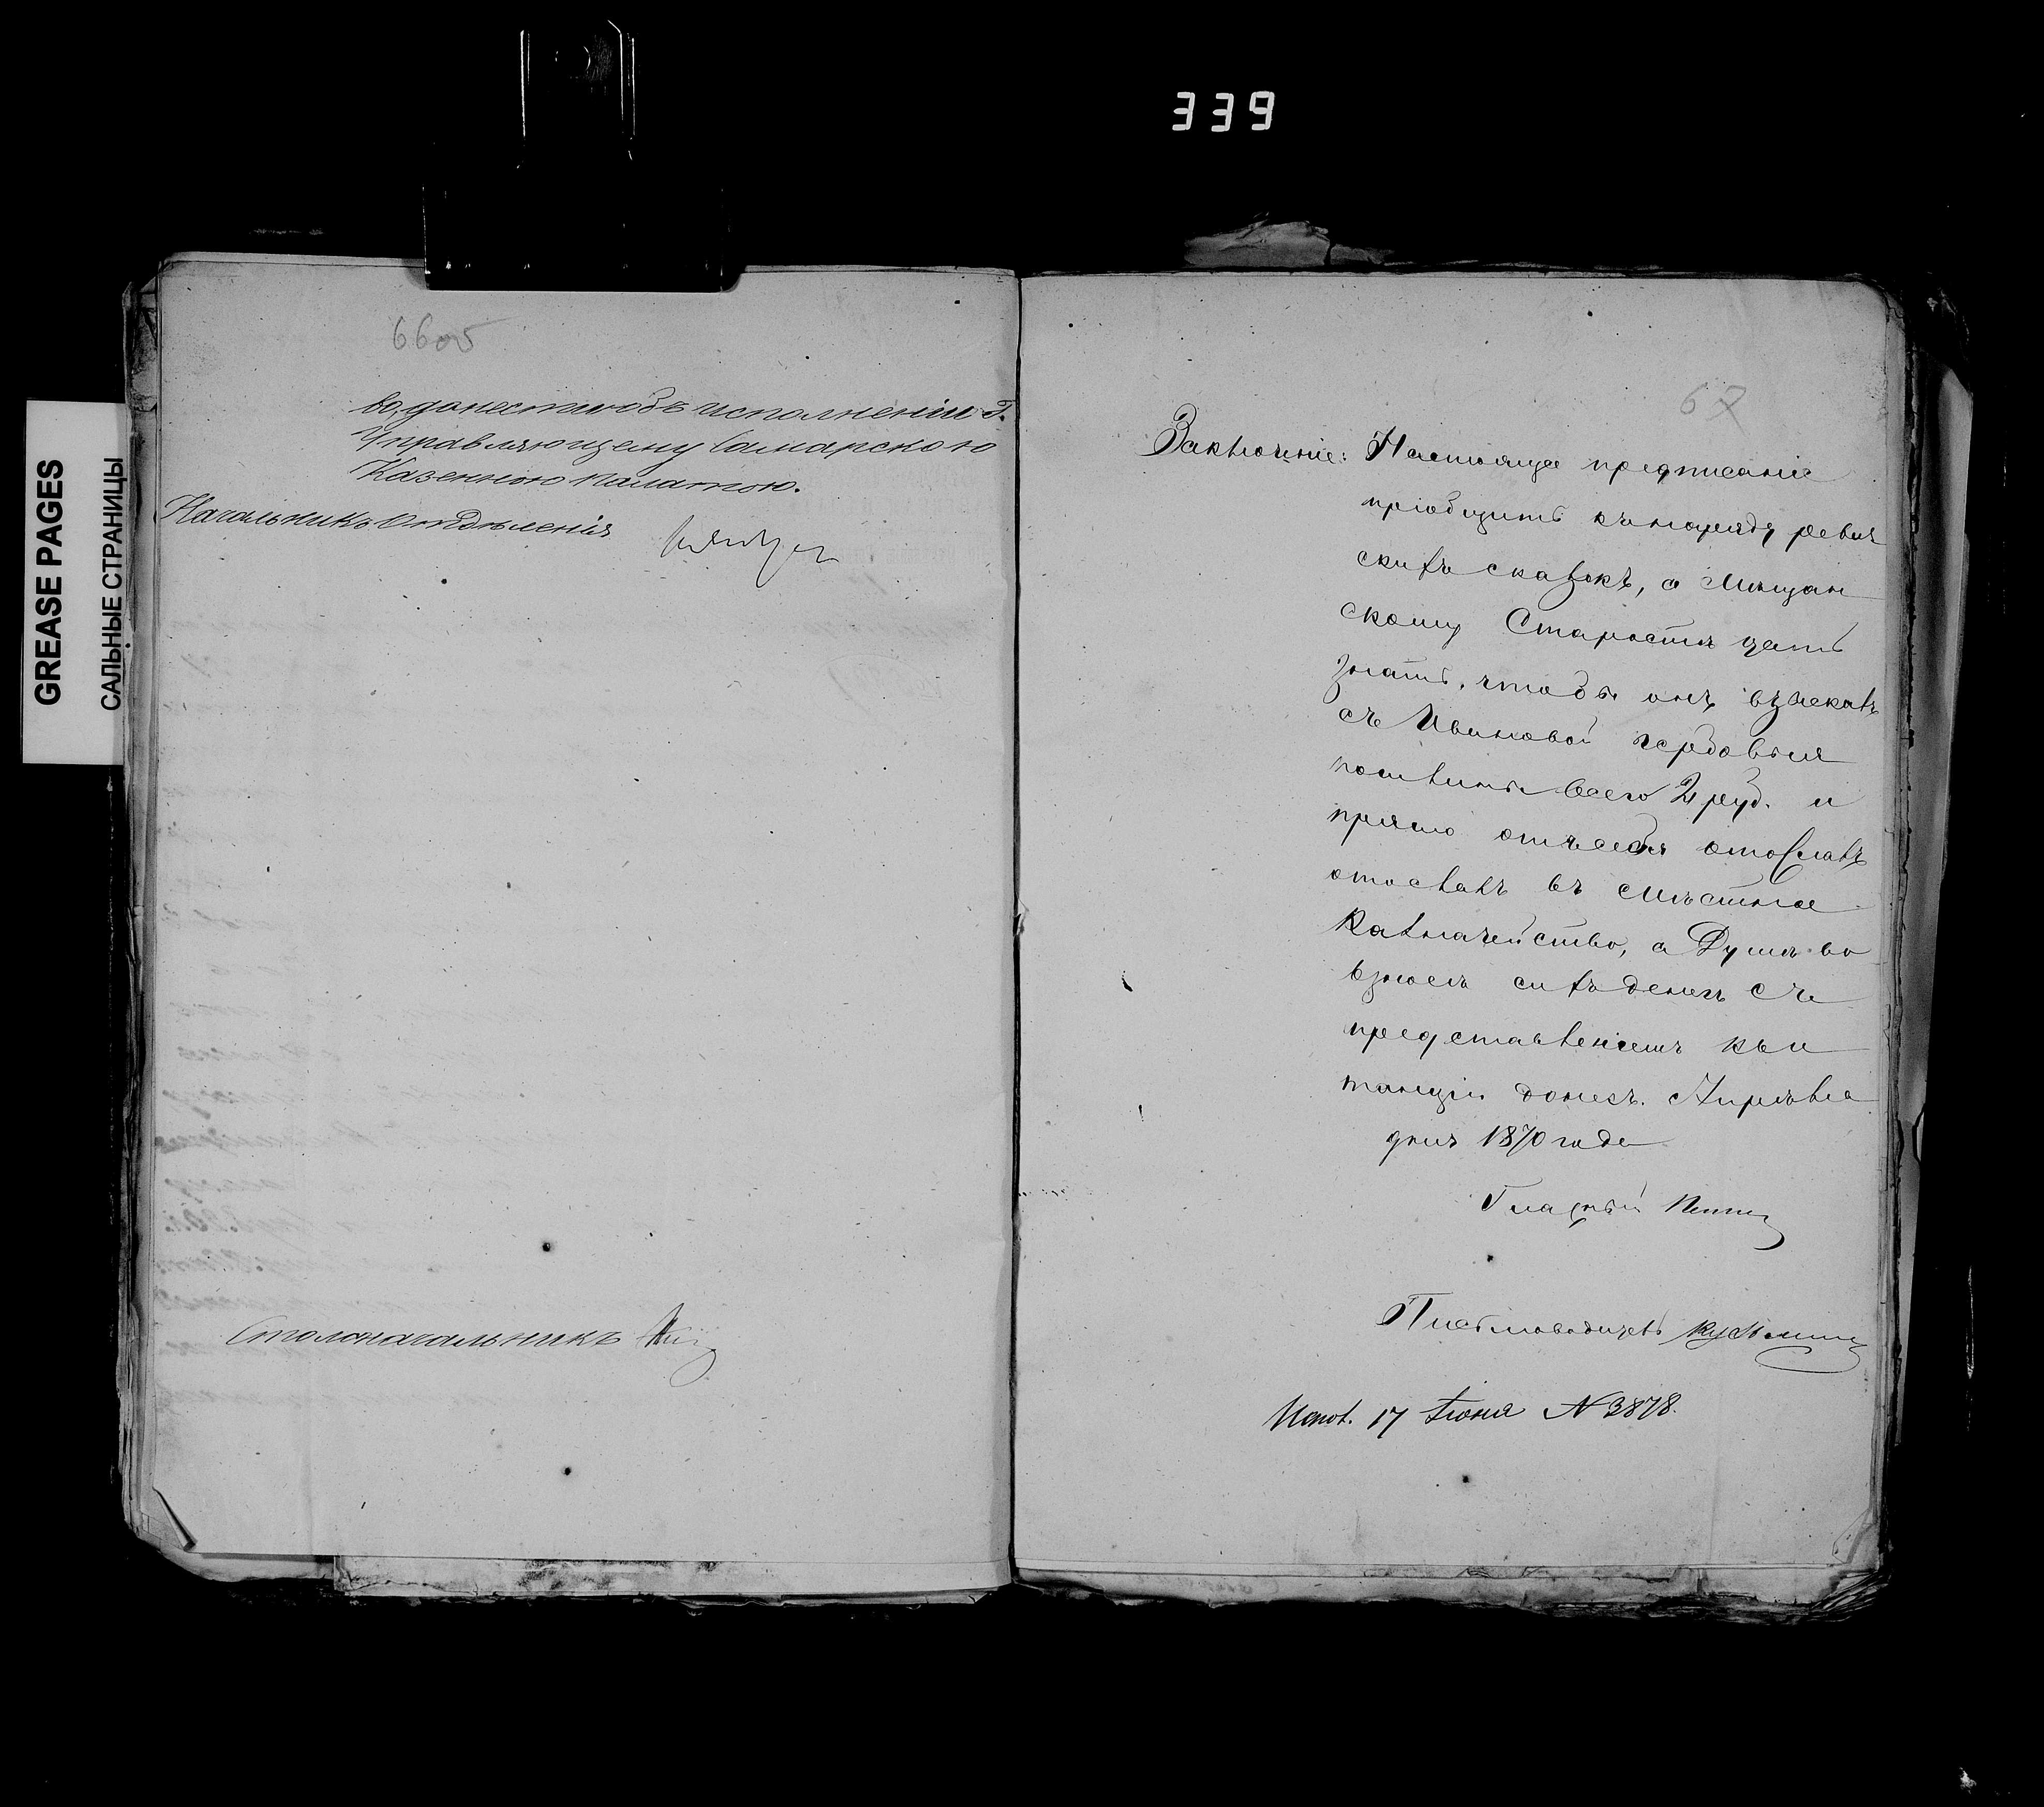 339
GREASE PAGES
САЛЬНЫЕ СТРАНИЦЫ
66об
во, донести объ исполненіи Г.
Управляющему Самарскою
Казенною палатою.
Начальникъ Отдѣленія
Столоначальникъ
67
Заключеніе: Настоящее предписаніе
пріобщить къ наряду ревиз
скихъ сказокъ, а Мѣщан
скому Старостѣ дать
знать, чтобы онъ взыскалъ
съ Ивановой гербовыя
пошлины всего 2 руб. и
прямо отъ себя отослалъ
отослалъ въ мѣстное
Казначейство, а Думѣ во
взносѣ сихъ денегъ съ
представленіемъ кви
танціи донесъ. Апрѣля
дня 1870 года
Гласный
Письмоводитель Кузьминъ
Испол. 17 Іюня N 3878.